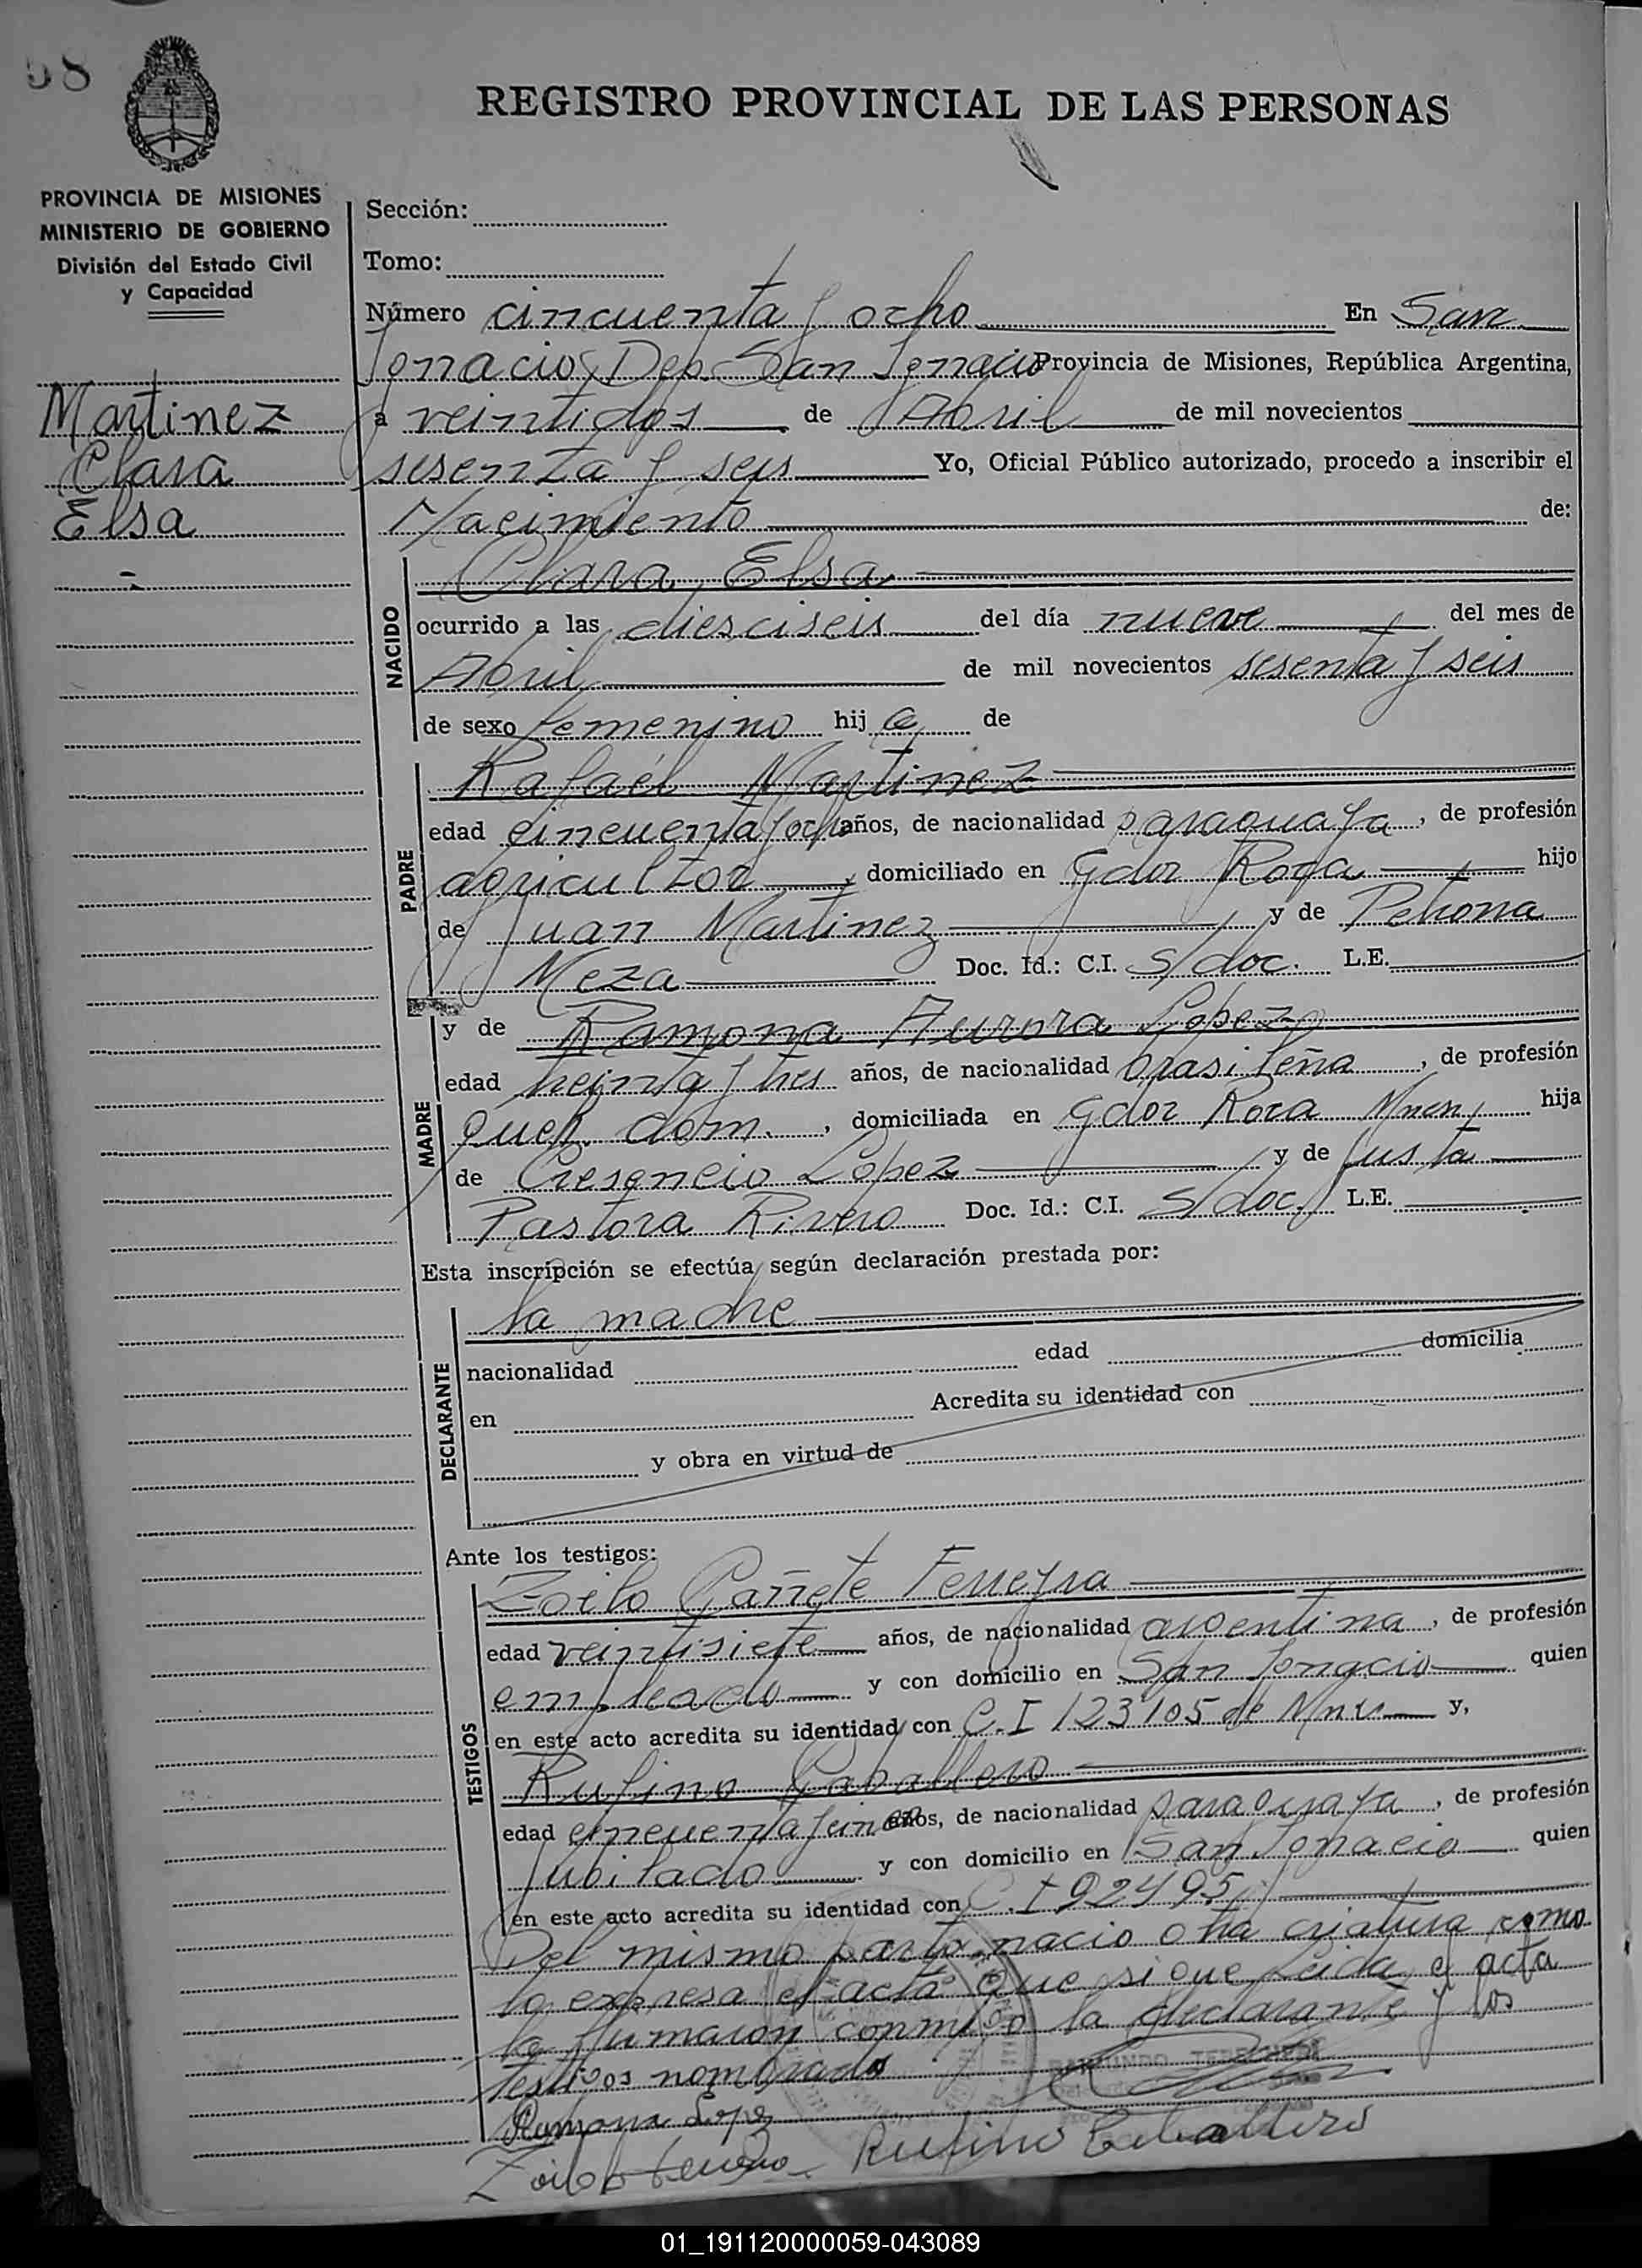 58
REGISTRO PROVINCIAL DE LAS PERSONAS
PROVINCIA DE MISIONES
MINISTERIO DE GOBIERNO
División del Estado Civil
y Capacidad
Martinez
Clara
Elsa
Sección:
Tomo:
Número cincuenta y ocho En San
Ignacio, Dep. San Ignacio Provincia de Misiones, República Argentina,
a veintidos de Abril de mil novecientos
sesenta y seis Yo, Oficial Público autorizado, procedo a inscribir el
Nacimiento de:
NACIDO
Clara Elsa
ocurrido a las diesciseis del día nueve del mes de
Abril de mil novecientos sesenta y seis
de sexo femenino hij a de
PADRE
Rafaél Martinez
edad cincuenta y ocho años, de nacionalidad paraguaya, de profesión
agricultor, domiciliado en Gdor Roca hijo
de Juan Martinez y de Petrona
Meza Doc. Id.: C.I. S/doc. L.E.
MADRE
y de Ramona Aurora Lopez
edad treinta y tres años, de nacionalidad brasileña, de profesión
queh. dom., domiciliada en Gdor Roca Mnes, hija
de Cresencio Lopez y de Justa
Pastora Rivero Doc. Id.: C.I. S/doc. L.E.
Esta inscripción se efectúa según declaración prestada por:
DECLARANTE
la madre
nacionalidad edad domicilia
en Acredita su identidad con
y obra en virtud de
Ante los testigos:
TESTIGOS
Zoilo Cañete Ferreyra
edad veintisiete años, de nacionalidad argentina, de profesión
empleado y con domicilio en San Ignacio quien
en este acto acredita su identidad con C.I 123105 de Mnes y,
Rufino Caballero
edad cincuenta y cinco años, de nacionalidad paraguaya, de profesión
Jubilado y con domicilio en San Ignacio quien
en este acto acredita su identidad con C.I 92495
Del mismo parto nacio otra criatura como
lo expresa el acta que sigue Leida el acta
la firmaron conmigo la declarante y los
testigos nombrados
Ramona Lopez
Zoilo Ferreyra Rufino Caballero
01_191120000059-043089